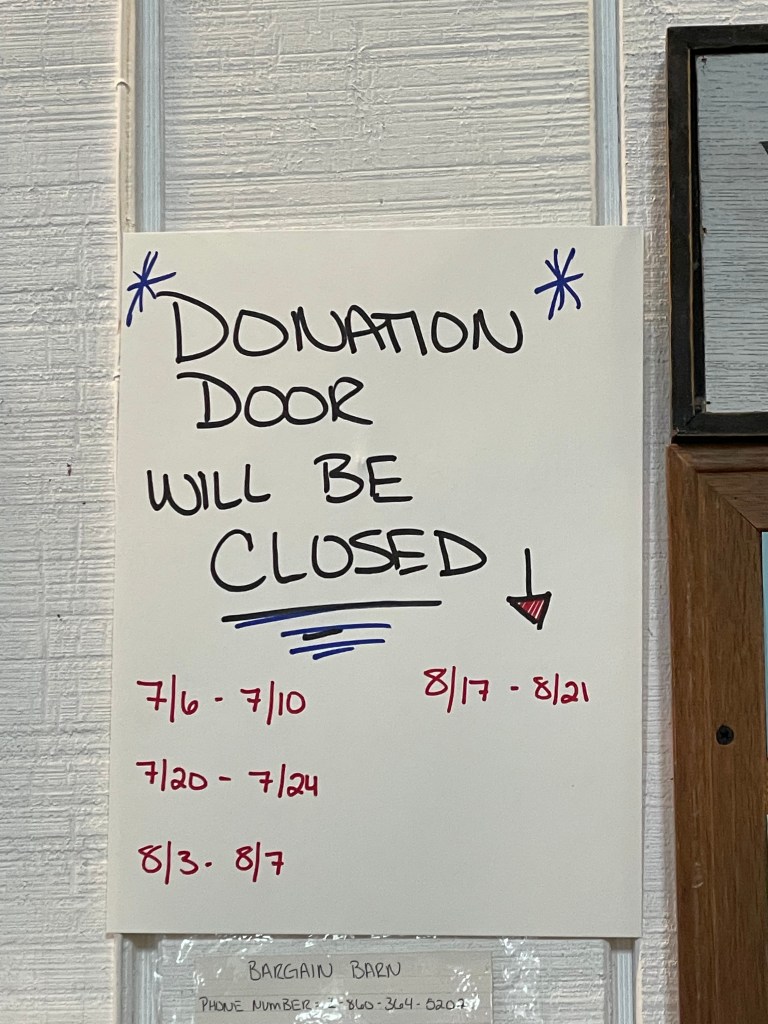 * DONATION *
DOOR
WILL BE
CLOSED
7/6 - 7/10
7/20 - 7/24
8/3 - 8/7
8/17 - 8/21
BARGAIN BARN
PHONE NUMBER: 1-860-364-5207